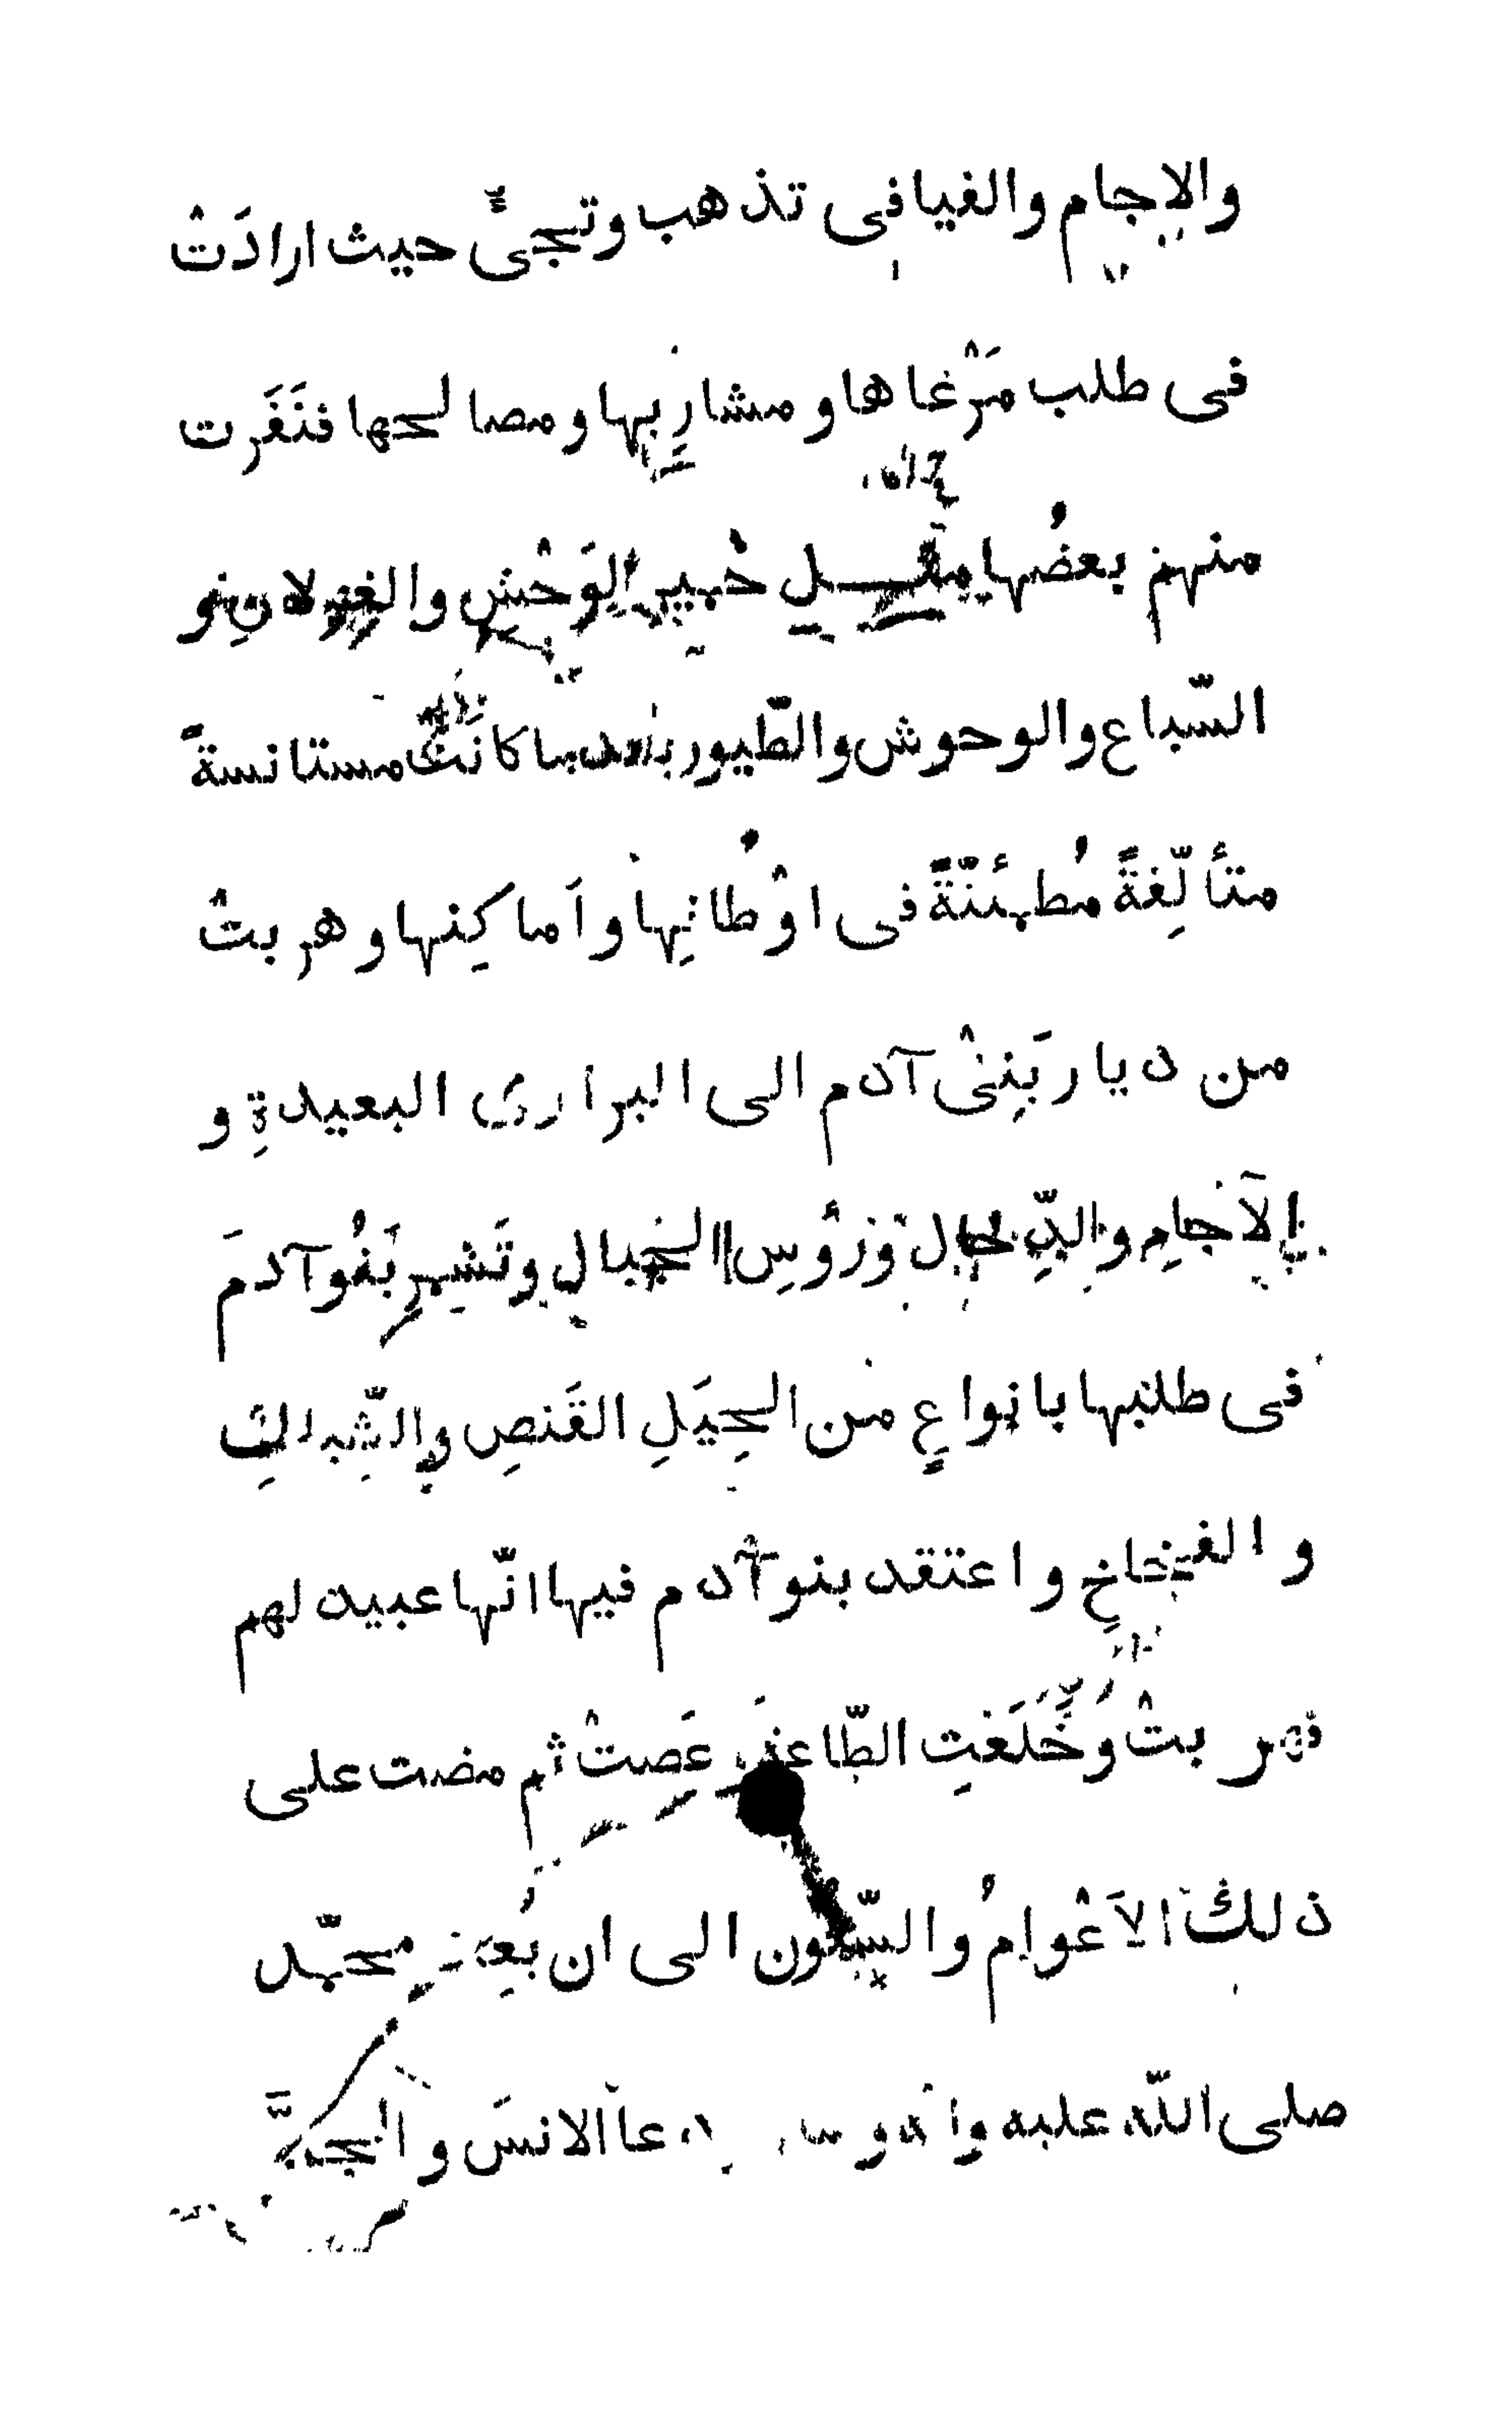 والاجام والفيافى تذهب وتجىء حيث ارادَتْ
فى طلب مَرْعاها و مشارِبِها و مصالحها فنَفَرت
منهم بعضُها مثل حمير الوَحْشِ والغزلانِ و
السّباع والوحوش والطّيور بعد ما كانَتْ مستانسةً
متأَلِّفةً مُطمئنّةً فى اوْطانِها و اَماكِنها و هربتْ
من ديار بَنِىْ آدم الى البرارى البعيدةِ و
الآجامِ والدِّحال وَرُؤسِ الجبالِ وتَشمر بَنُو آدمَ
فى طلبها بانواعٍ من الحِيَلِ القَنصِ والشِّباكِ
و الفخاخِ و اعتقد بنو آدم فيها انّها عبيد لهم
هربتْ وَخَلَعَتِ الطّاعة وعَصتْ ثم مضت على
ذلك الاَعْوامُ والسّنون الى ان بُعِث محمّد
صلى اللّه عليه وآله و دعا الانسَ و الجنَّ